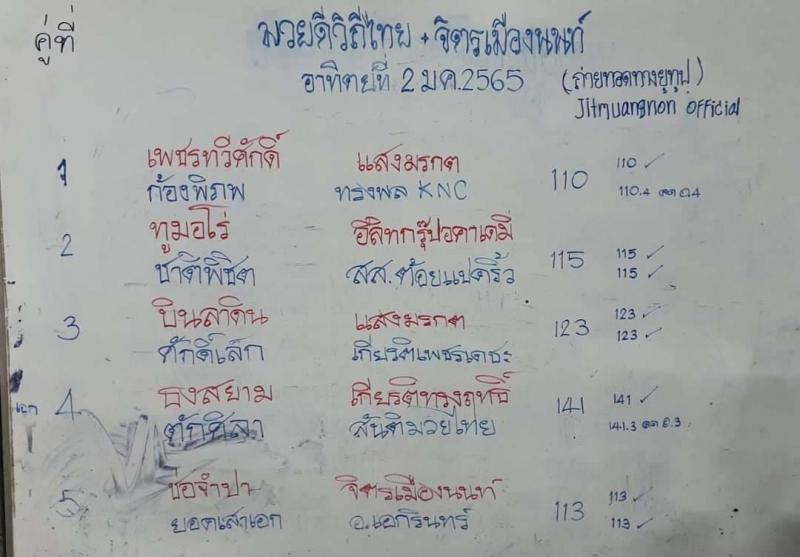 คู่ที่
มวยดีวิถีไทย + จิตรเมืองนนท์
อาทิตย์ที่ 2 มค.2565
(ถ่ายทอดทางยูทูป)
Jitmuangnon official
1 เพชรทวีศักดิ์ แสงมรกต 110 110 ✓
ก้องพิภพ ทรงพล KNC 110.4 ลด 0.4
2 ทูมอโร่ อีลิทกรุ๊ปอคาเดมี่ 115 115 ✓
ชาติพิชิต สส.ต้อยแปดริ้ว 115 ✓
3 บินลาดิน แสงมรกต 123 123 ✓
ศักดิ์เล็ก เกียรติเพชรเดชะ 123 ✓
เอก 4 ธงสยาม เกียรติทรงฤทธิ์ 141 141 ✓
ตักศิลา สันติมวยไทย 141.3 ลด 0.3
5 ช่อจำปา จิตรเมืองนนท์ 113 113 ✓
ยอดเสาเอก อ.เอกิรินทร์ 113 ✓